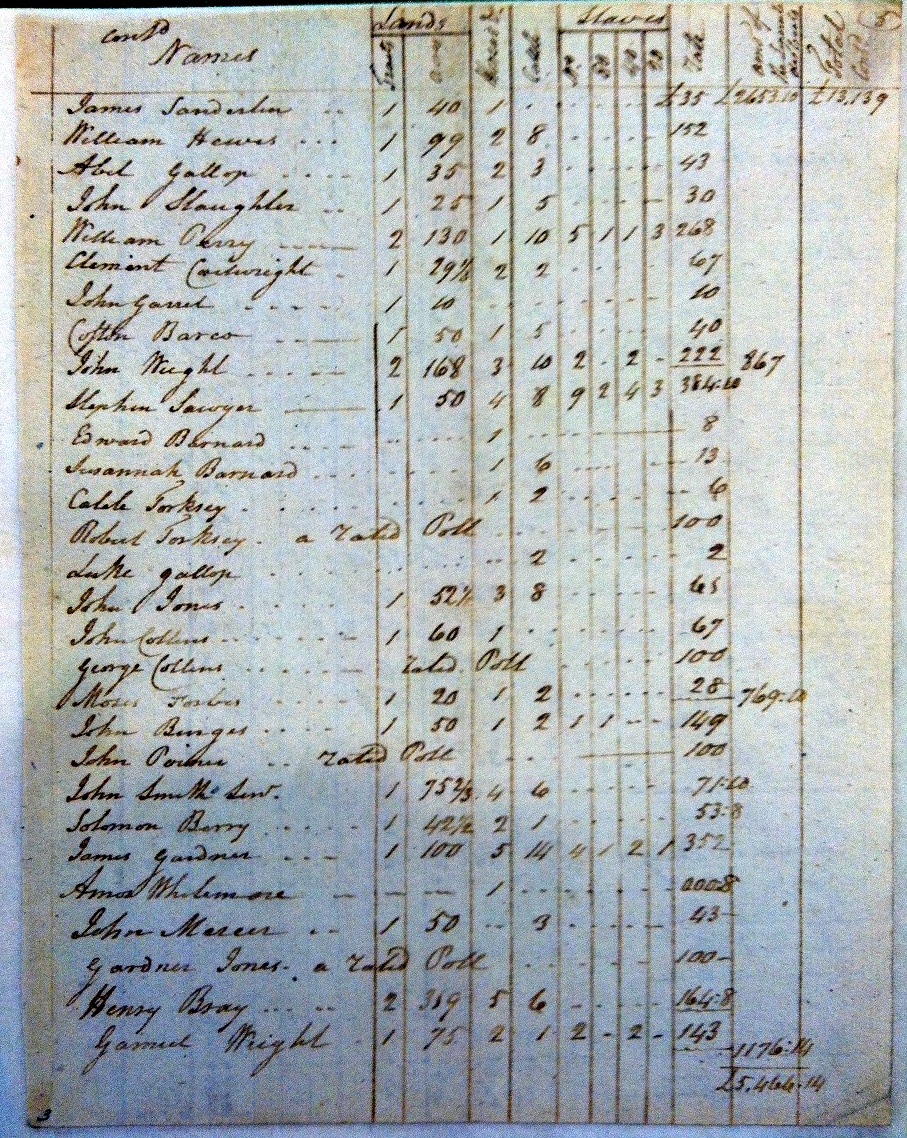 contd Lands Slaves
Names Tracts acres Cattle No Vall amt of Total
James Sanderlin .. 1 40 1 . . . . . . £35 £2653.10 £13,139
William Hewes ... 1 99 2 8 . . . . 152
Abel Gallop .... 1 35 2 3 . . . . 43
John Slaughter .. 1 25 1 5 . . . . 30
William Perry 2 130 1 10 5 1 1 3 268
Clement Cartwright . 1 29½ 2 2 . . . . 67
John Garret .... 1 10 . . . . . . 10
Cofton Barco 1 50 1 5 . . . . 40
John Wright 2 168 3 10 2 - 2 - 222 867
Stephen Sawyer 1 50 4 8 9 2 4 3 384.10
Edward Barnard 1 8
Susannah Barnard .... 1 6 13
Caleb Torksey . . 1 2 6
Robert Torksey . a rated Poll 100
Luke Gallop 2 2
John Jones . . . 1 52½ 3 8 . . . . 65
John Collins . . . 1 60 1 . . . . 67
George Collins . . . rated Poll . . . . 100
Moses Forbes . . . 1 20 1 2 . . . . 28 769.10
John Burges . . . 1 50 1 2 1 1 - - 149
John Poiner .. rated Poll . . 100
John Smith Senr. 1 75⅔ 4 6 . . . . 71.10
Solomon Berry . . . . 1 42½ 2 1 . . . . 53.8
James Gardner . . . 1 100 5 14 4 1 2 1 352
Amos Whitemore - - - 1 . . . . 000.8
John Mercer .. 1 50 3 . . . . 43-
Gardner Jones - a rated Poll . . . . 100-
Henry Bray ... 2 319 5 6 . . . . 164.8
Gamuel Wright . 1 75 2 1 2 - 2 - 143
1176.14
£5,466.14
3